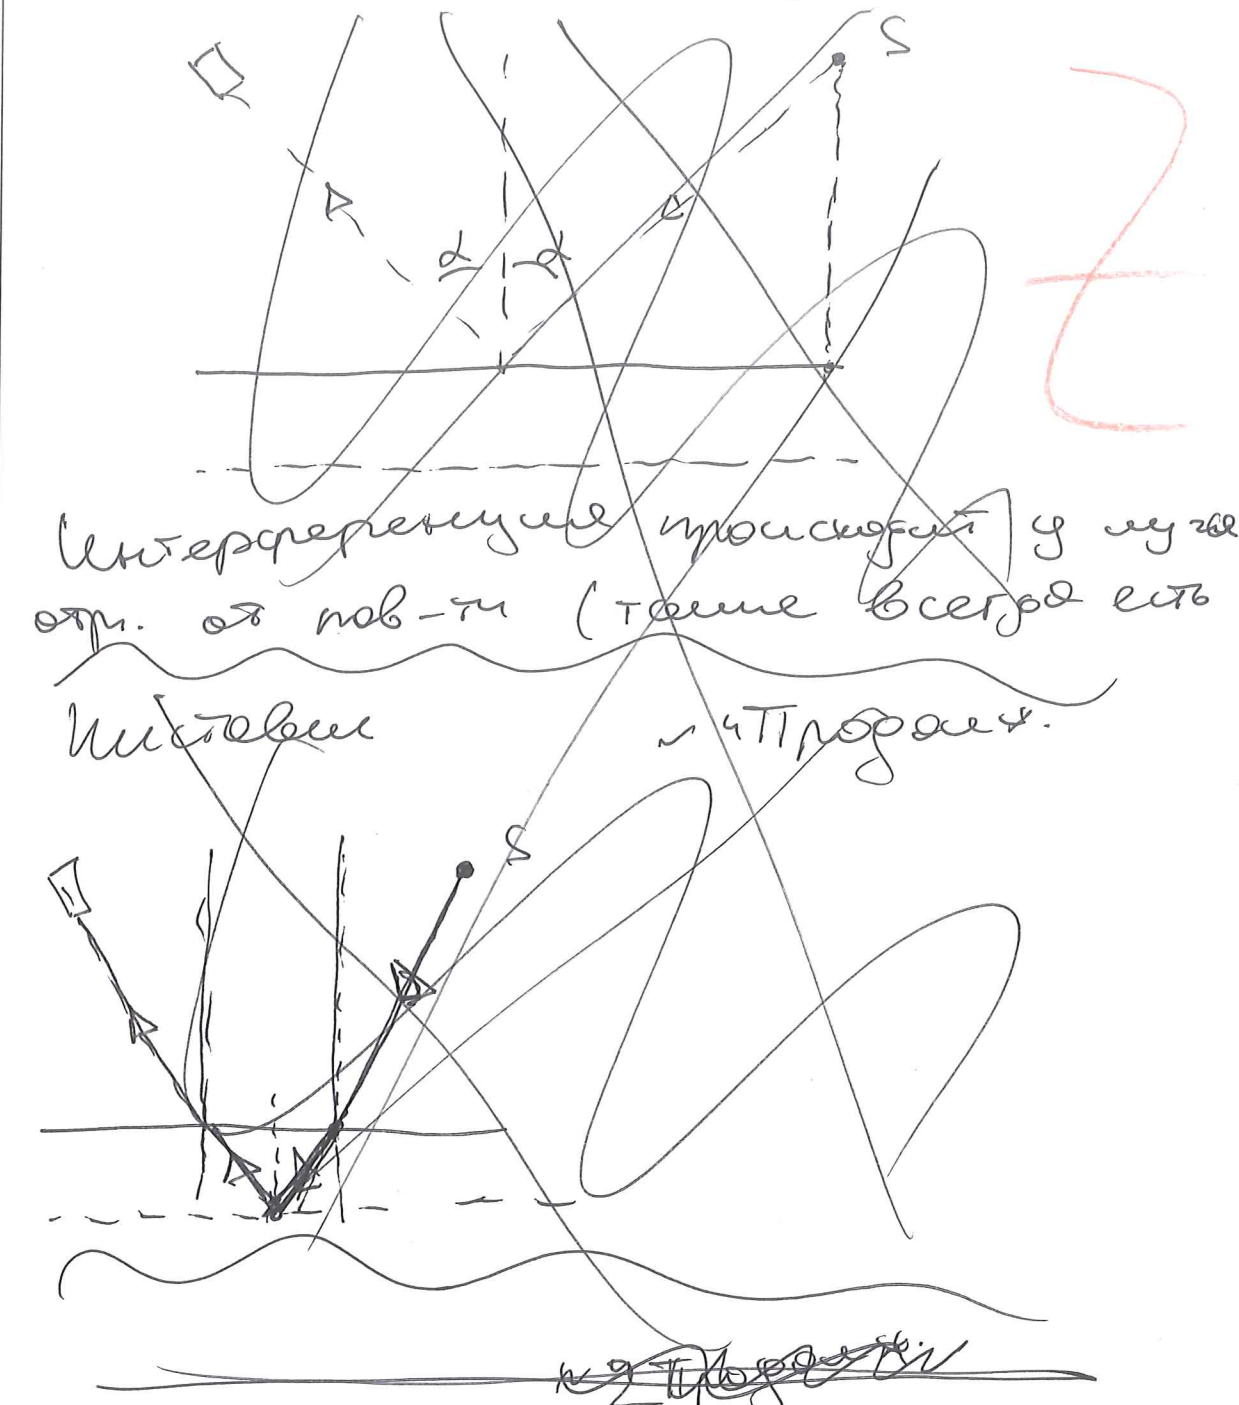 S
α α
Интерференция происходит у луча
отр. от пов-ти (также всегда есть
"Продолж.
S